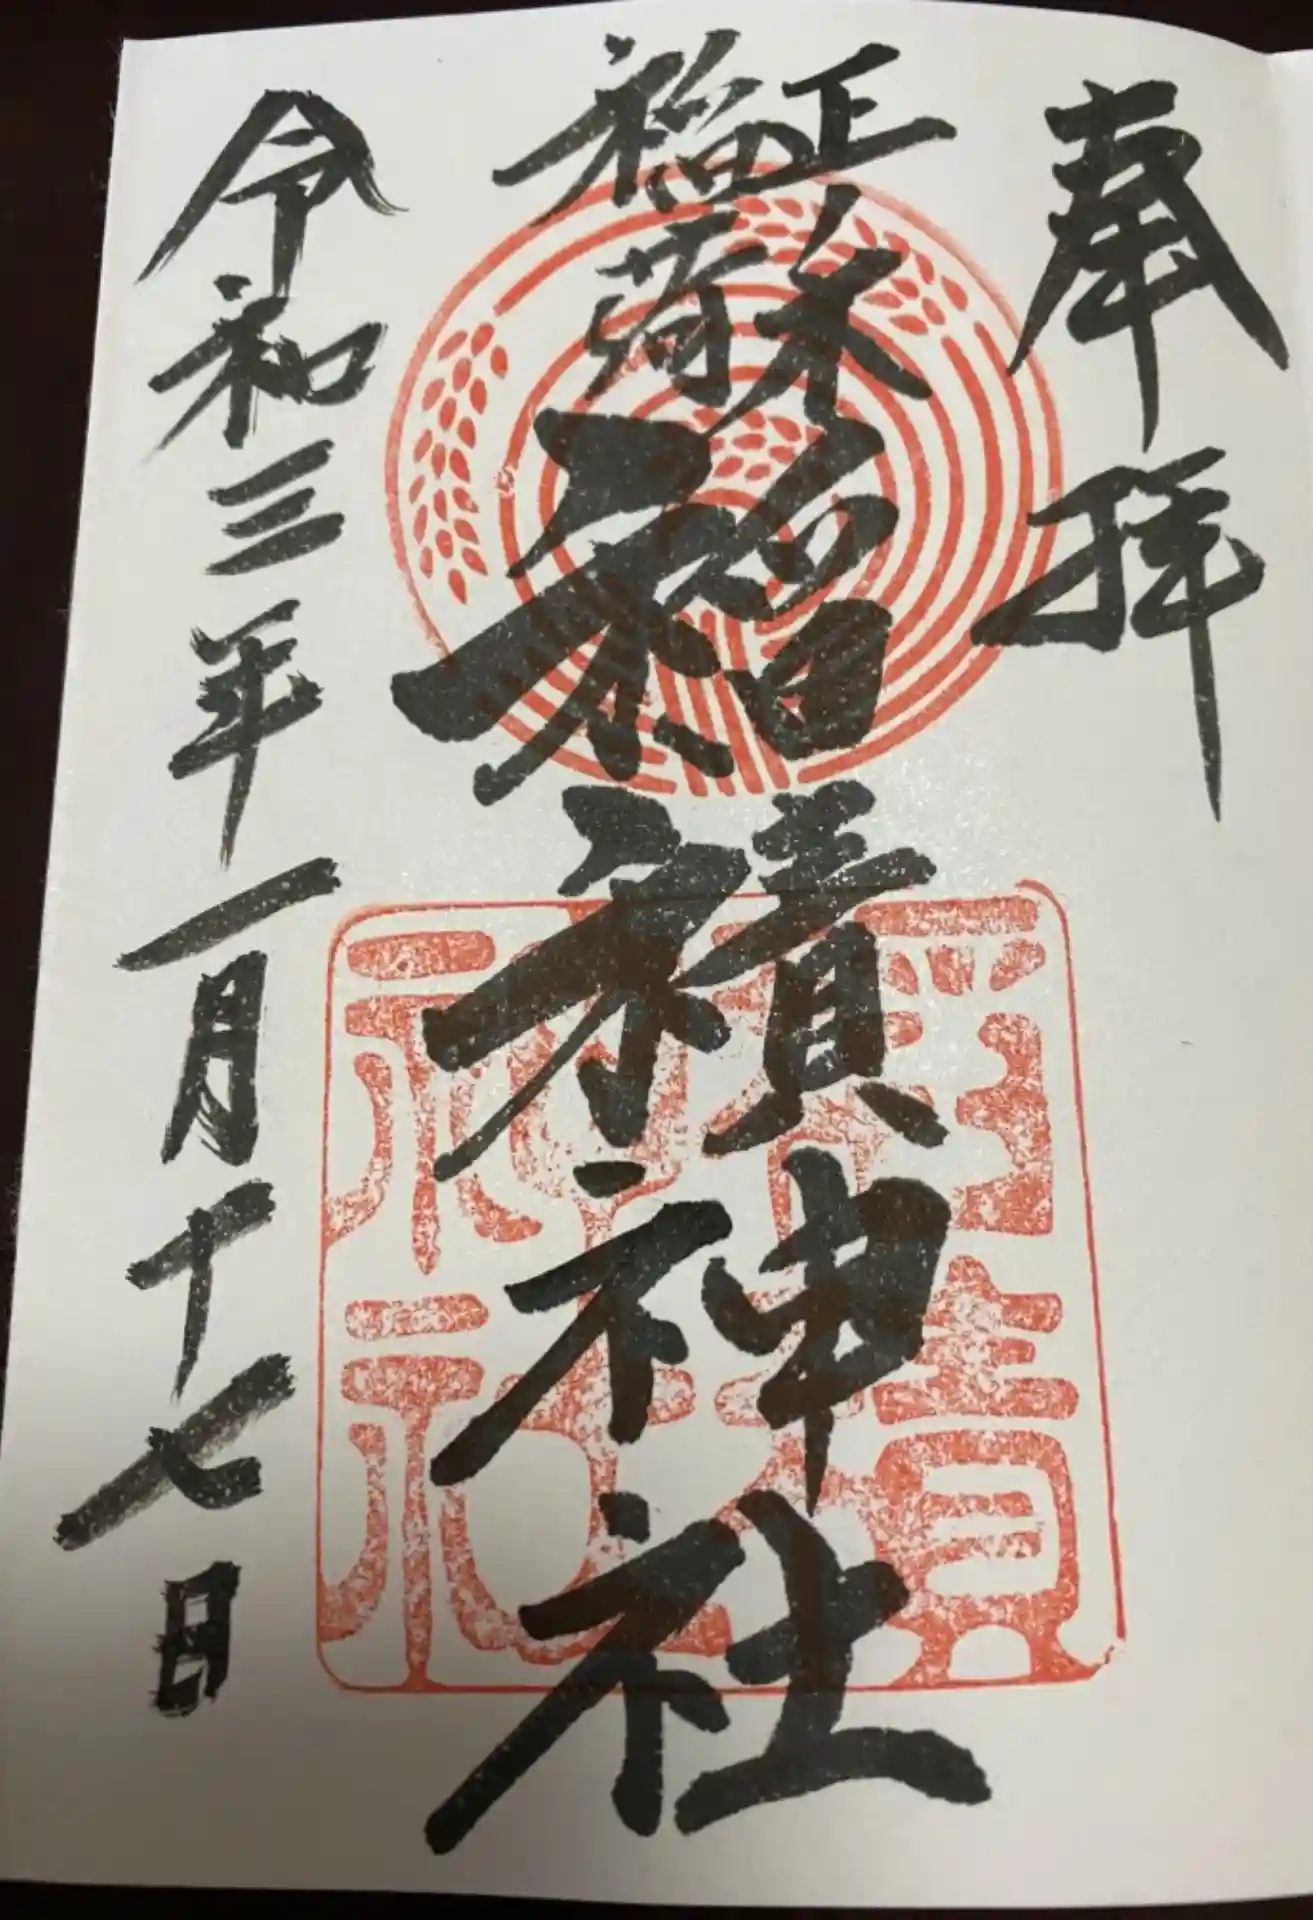 奉拝
正ノ木
稲荷
稲積神社
令和三年一月十七日
稲積
神社